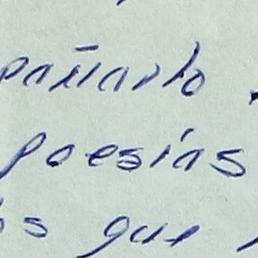 pañarlo
poesías
s que